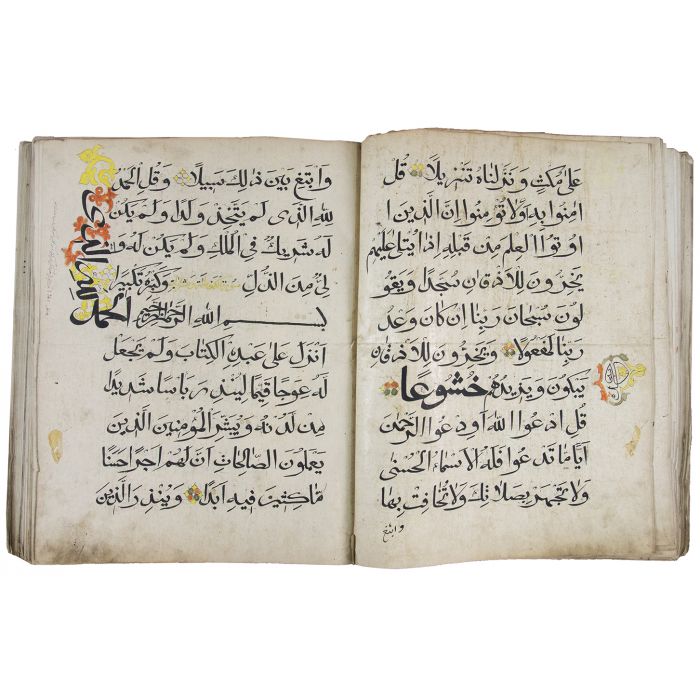 على مكث ونزلناه تنزيلا قل
امنوا به اولا تومنوا ان الذين ا
وتوا العلم من قبله اذا يتلى عليهم
يخرون للاذقان سجدا ويقو
لون سبحان ربنا ان كان وعد
ربنا لمفعولا ويخرون للاذقان
يبكون ويزيدهم خشوعا
قل ادعوا الله او ادعوا الرحمن
ايا ما تدعوا فله الاسماء الحسنى
ولا تجهر بصلاتك ولا تخافت بها
وابتغ
وابتغ بين ذلك سبيلا وقل الحمد
لله الذى لم يتخذ ولدا ولم يكن
له شريك فى الملك ولم يكن له و
لى من الذل وكبره تكبيرا
بسم الله الرحمن الرحيم الحمد لله الذى
انزل على عبده الكتاب ولم يجعل
له عوجا قيما لينذر باسا شديدا
من لدنه ويبشر المؤمنين الذين
يعملون الصالحات ان لهم اجرا حسنا
ماكثين فيه ابدا وينذر الذين